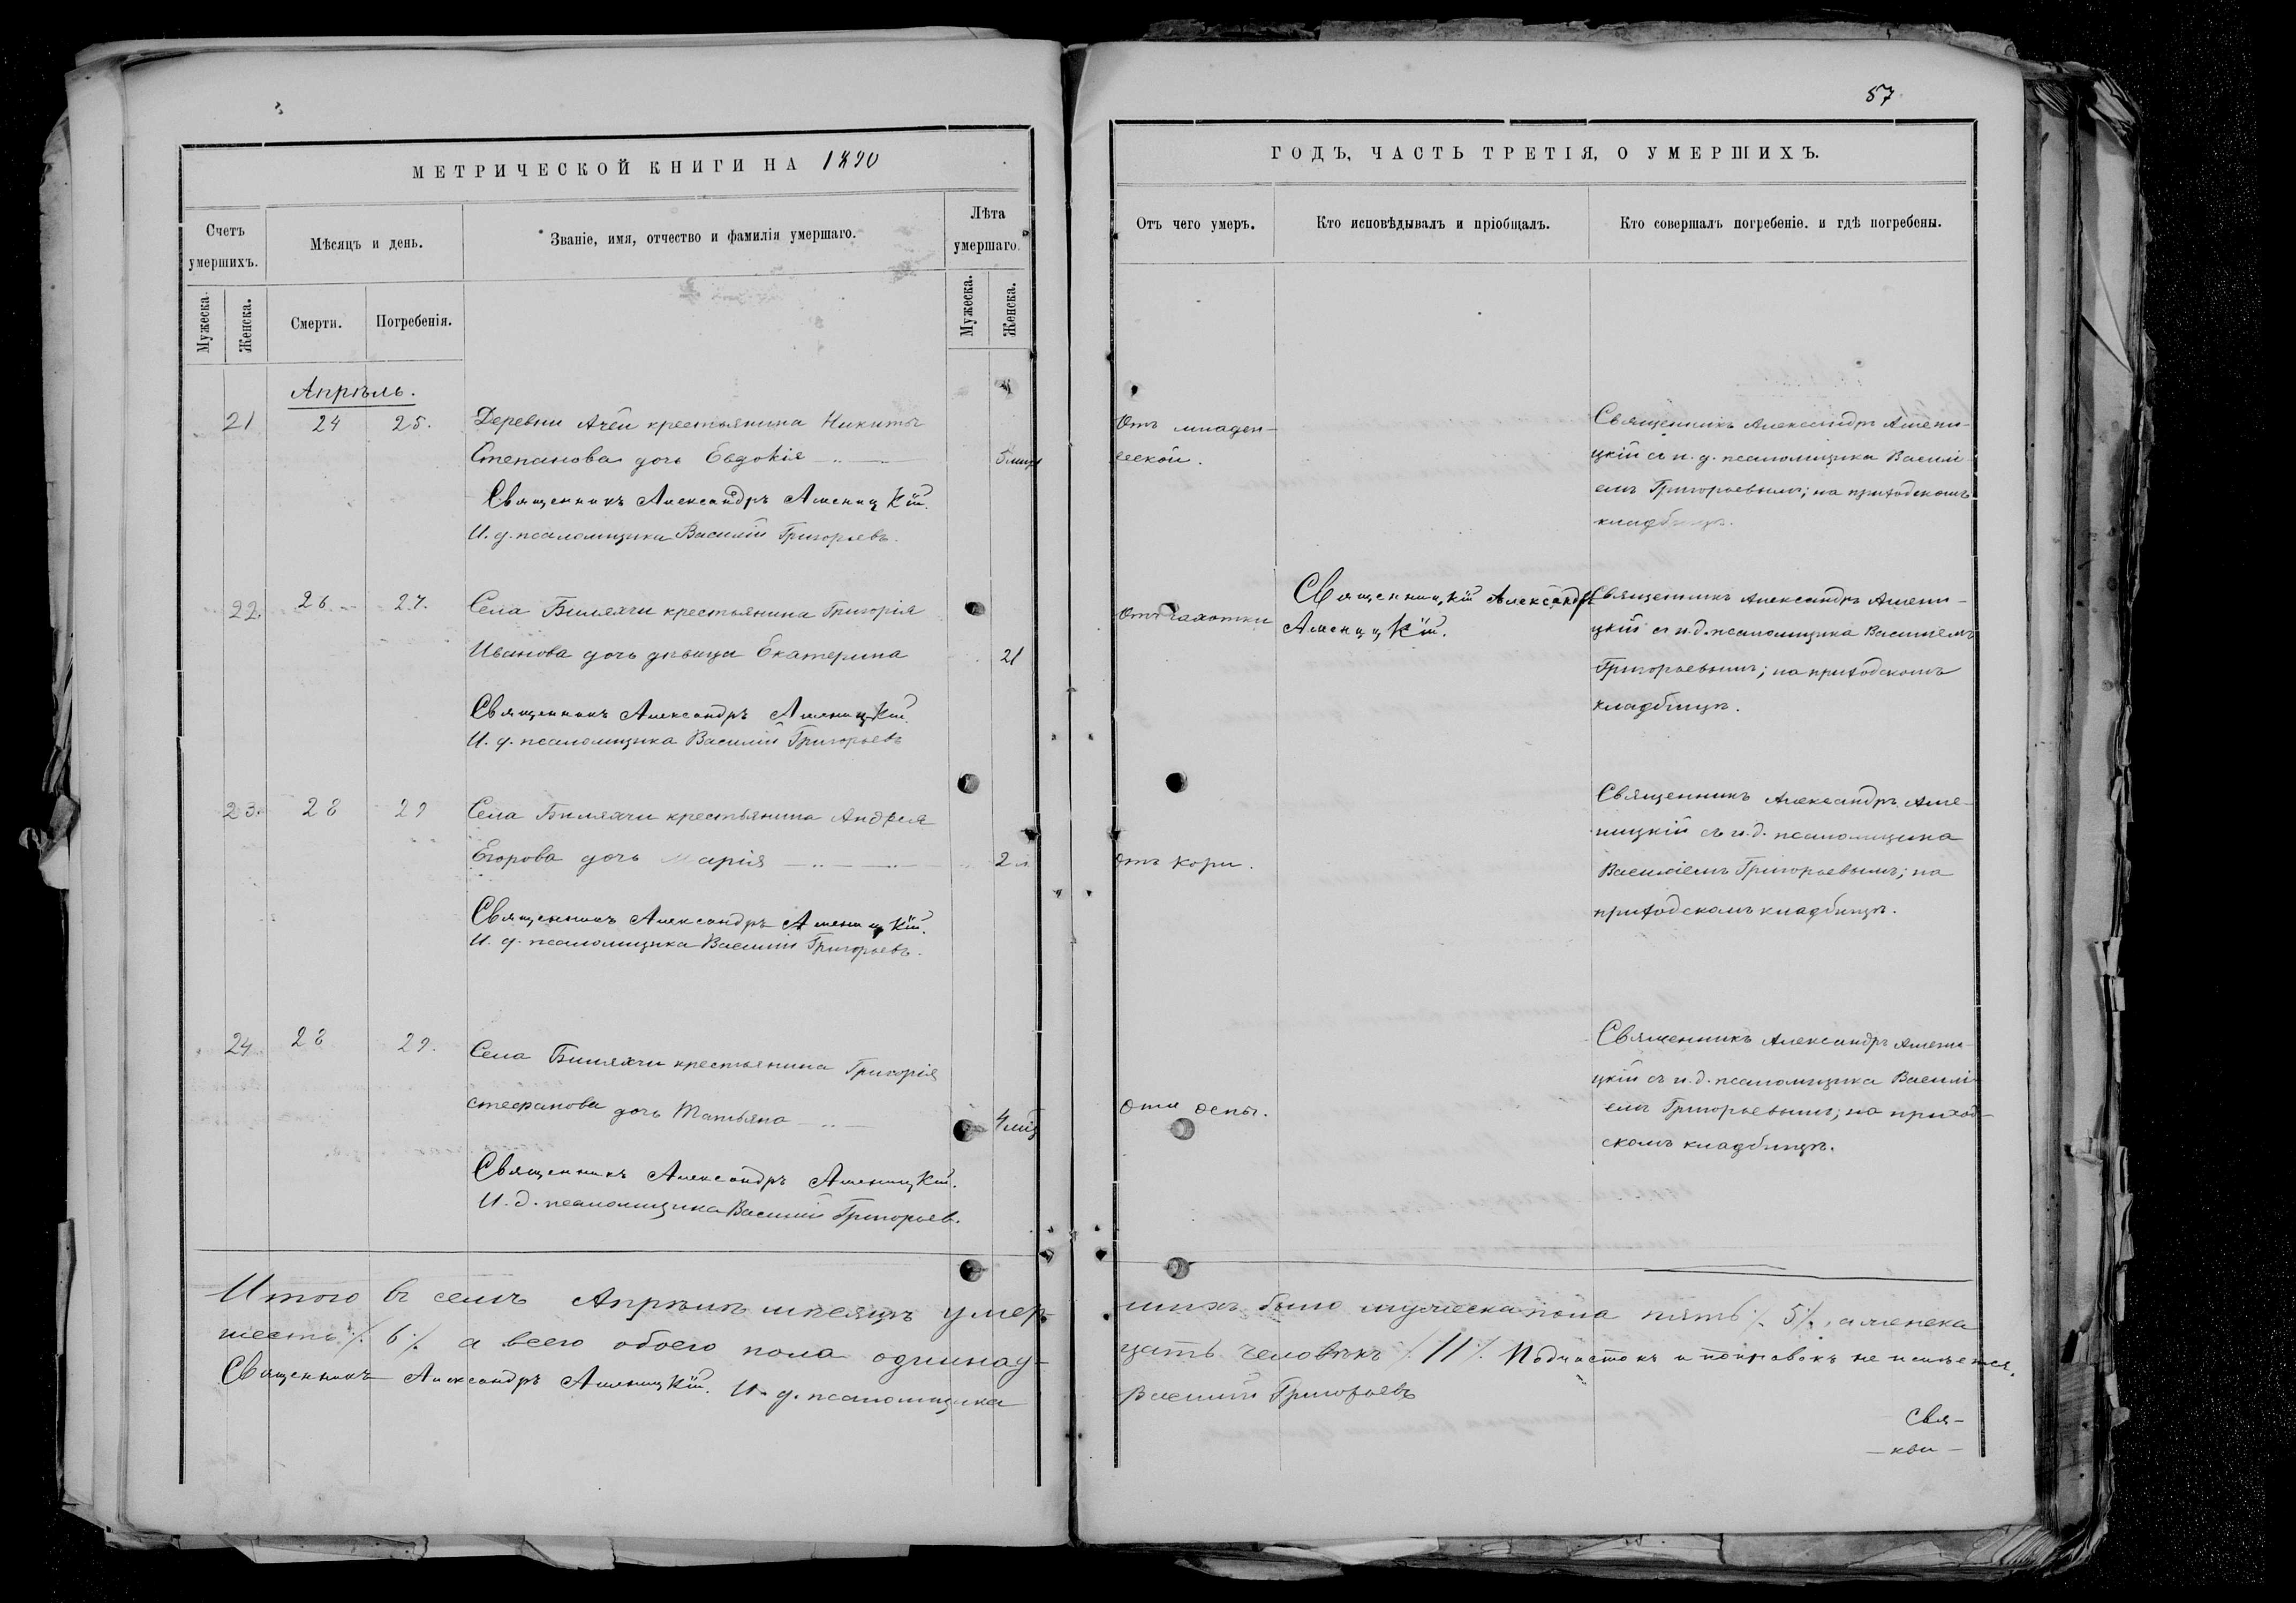 87
МЕТРИЧЕСКОЙ КНИГИ НА 1890
ГОДЪ, ЧАСТЬ ТРЕТІЯ, О УМЕРШИХЪ.
Счетъ умершихъ.
Мужеска.
Женска.
Мѣсяцъ и день.
Смерти.
Погребенія.
Званіе, имя, отчество и фамилія умершаго.
Лѣта умершаго.
Мужеска.
Женска.
Отъ чего умеръ.
Кто исповѣдывалъ и пріобщалъ.
Кто совершалъ погребеніе. и гдѣ погребены.
Апрѣль.
21 24 25. Деревни Ачей крестьянина Никиты
Степанова дочь Евдокія 5 мнц
Священникъ Александръ Аменицкій.
И. д. псаломщика Василій Григорьевъ.
Отъ младен-
ческой.
Священникъ Александръ Амени-
цкій съ и. д. псаломщика Василі
емъ Григорьевымъ; на приходскомъ
кладбищѣ.
22. 26 27. Села Билярчи крестьянина Григорія
Иванова дочь дѣвица Екатерина 21
Священникъ Александръ Аменицкій.
И. д. псаломщика Василій Григорьевъ
Отъ чахотки
Священницкій Александръ
Аменицкій.
Священникъ Александръ Амени-
цкій съ и. д. псаломщика Василіемъ
Григорьевымъ; на приходскомъ
кладбищѣ.
23. 28 29 Села крестьянина Андрея
Егорова дочь Марія 2 л.
Священникъ Александръ Аменицкій.
И. д. псаломщика Василій Григорьевъ.
отъ кори.
Священникъ Александръ Аме-
ницкій съ и. д. псаломщика
Василіемъ Григорьевымъ; на
приходскомъ кладбищѣ.
24. 28 29. Села крестьянина Григорія
Стефанова дочь Татьяна 4 мнц
Священникъ Александръ Аменицкій.
И. д. псаломщика Василій Григорьев.
отъ оспы.
Священникъ Александръ Амени-
цкій съ и. д. псаломщика Василі-
емъ Григорьевымъ; на приход-
скомъ кладбищѣ.
Итого въ семъ Апрѣлѣ мѣсяцѣ умер-
шихъ было мужеска пола пять ./. 5 ./., а женска
шесть ./. 6 ./. а всего обоего пола одиннад-
цать человѣкъ ./. 11 ./. Подчистокъ и поправокъ не имѣется.
Священникъ Александръ Аменицкій. И. д. псаломщика
Василій Григорьевъ
Свя-